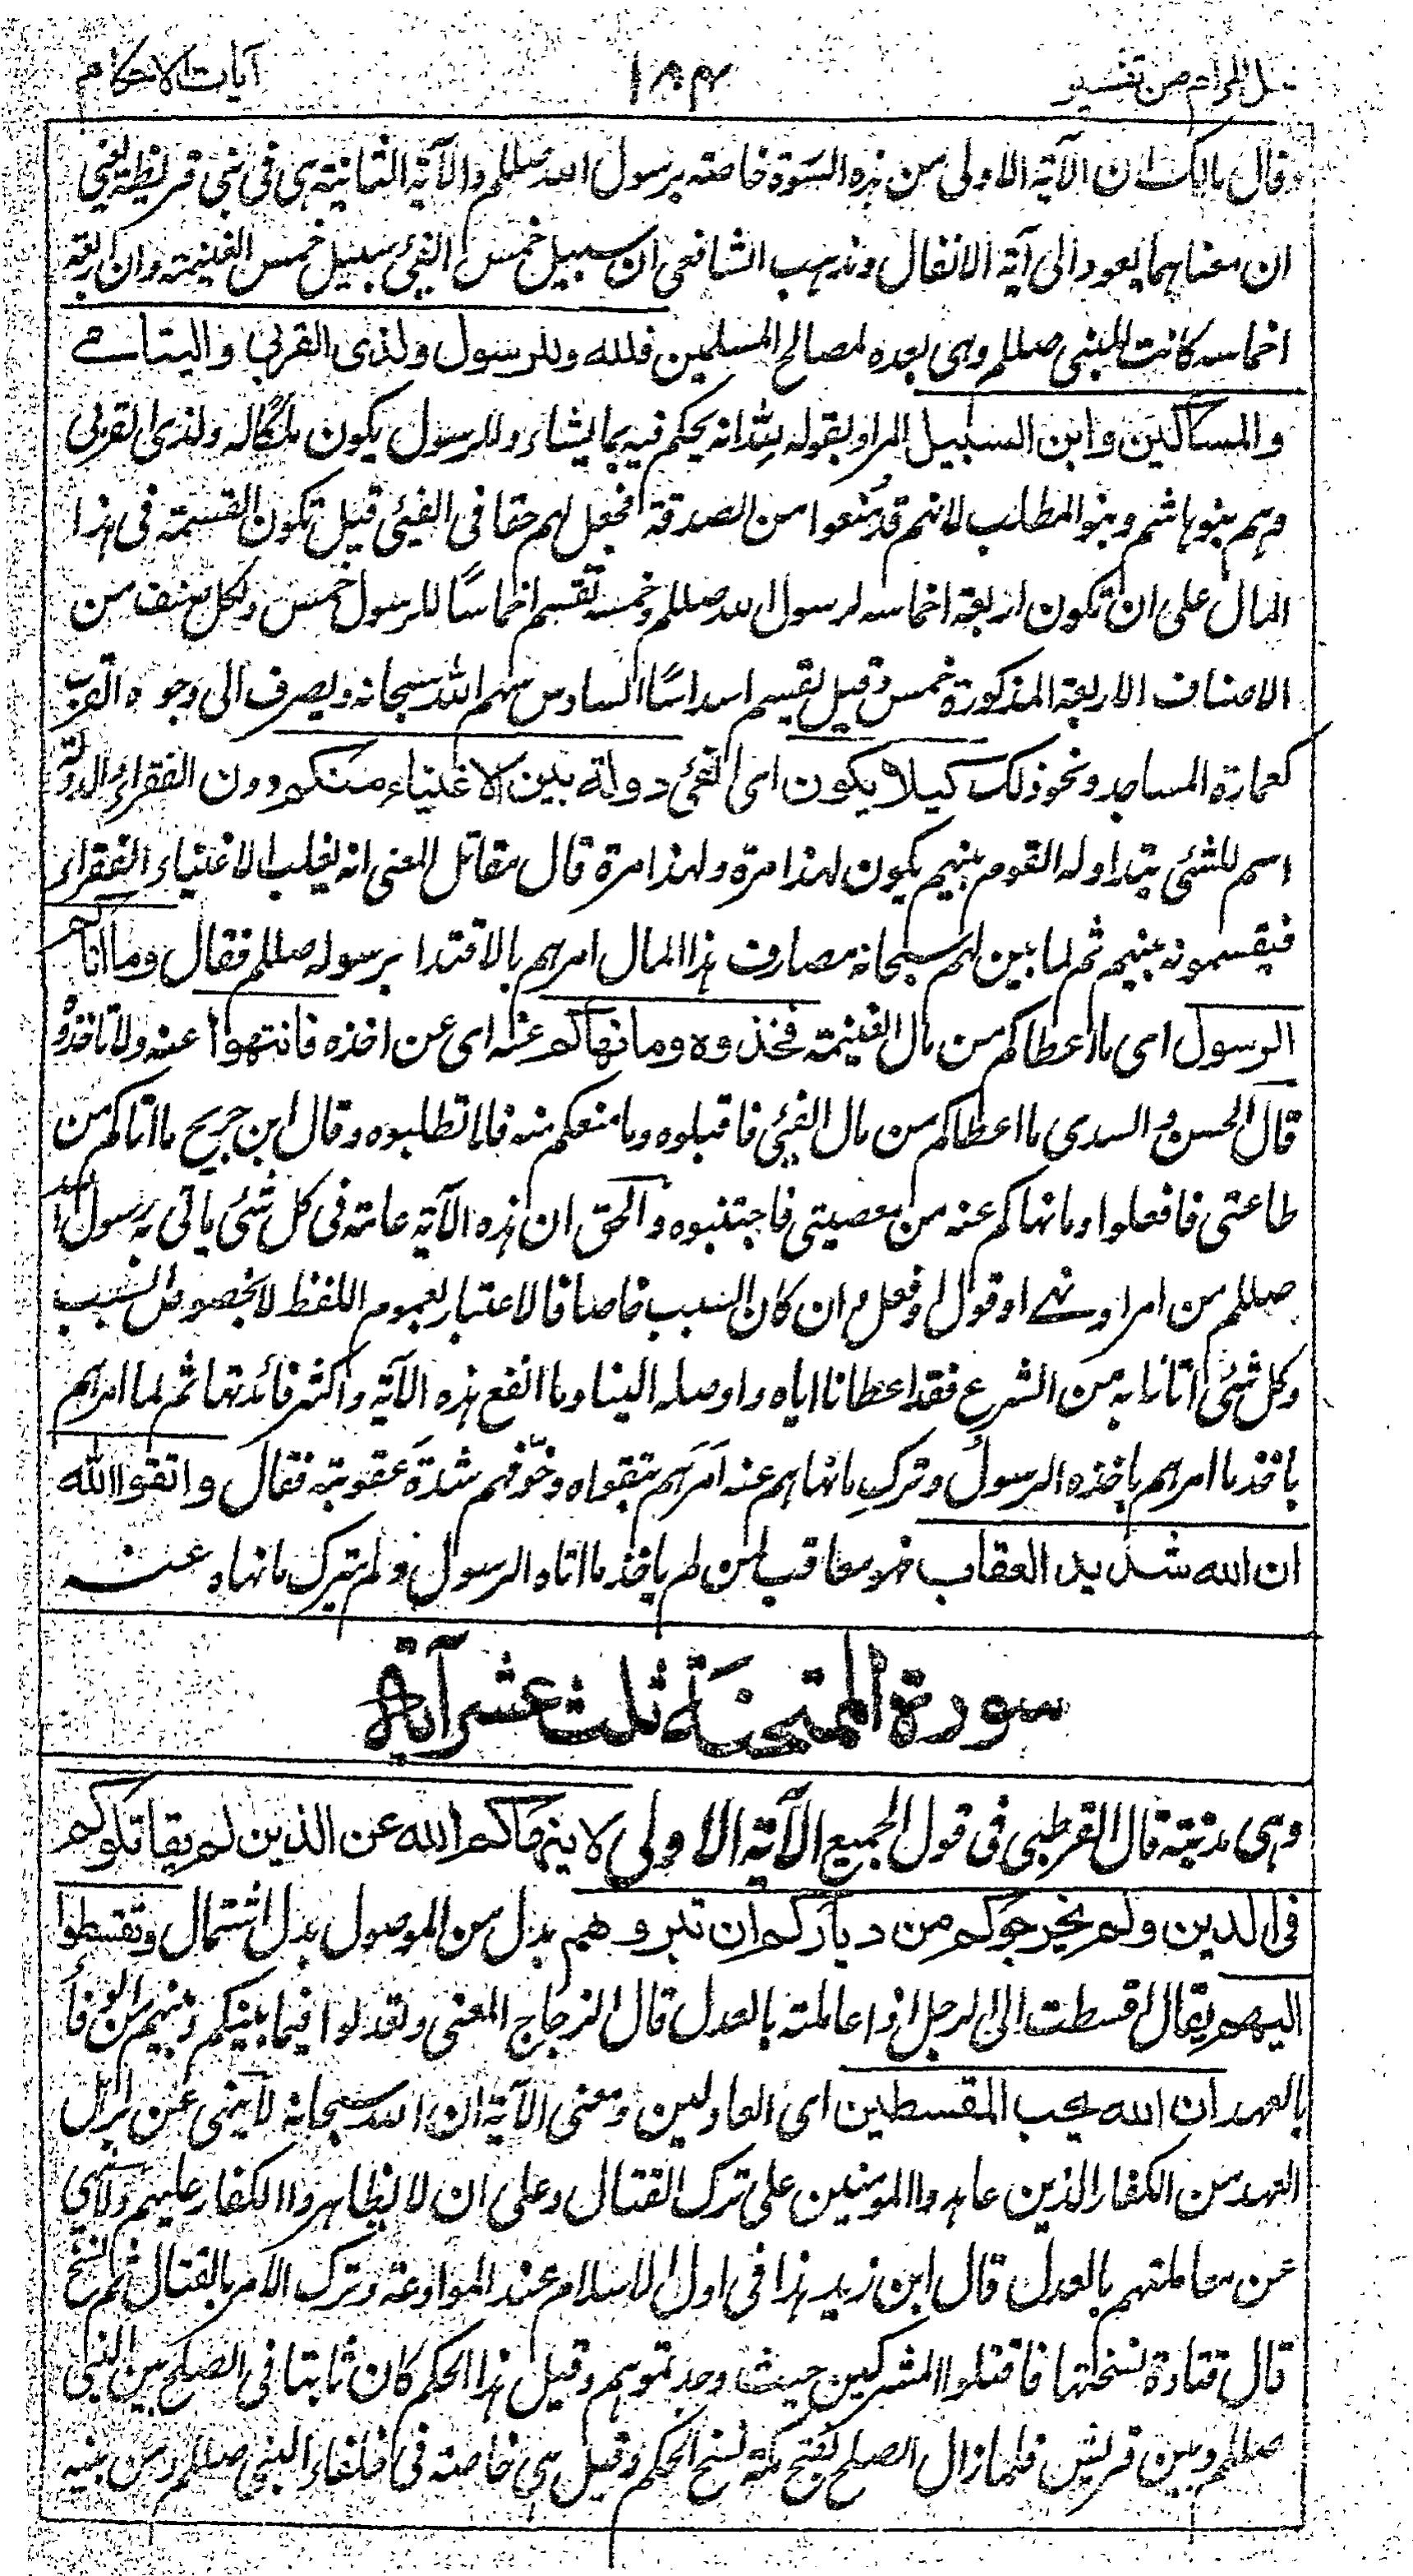 نيل المرام من تفسير ١٨٢ آيات الاحكام
وقال مالك ان الآية الاولى من هذه السورة خاصة برسول الله صللم والآية الثانية هى فى بنى قريظة يعنى
ان معناهما يعود الى آية الانفال ومذهب الشافعى ان سبيل خمس الفيئ سبيل خمس الغنيمة وان اربعة
اخماسه كانت للنبى صللم وهى بعده لمصالح المسلمين فلله وللرسول ولذى القربى واليتامى
والمساكين وابن السبيل المراد بقوله لله انه يحكم فيه بما يشاء وللرسول يكون ملكا له ولذى القربى
وهم بنو هاشم وبنو المطلب لانهم قد منعوا من الصدقة فجعل لهم حقا فى الفيئ قيل تكون القسمة فى هذا
المال على ان تكون اربعة اخماسه لرسول الله صللم وخمسه تقسم اخماسًا للرسول خمس ولكل صنف من
الاصناف الاربعة المذكورة خمس وقيل يقسم اسداسًا السادس سهم الله سبحانه ويصرف الى وجوه القرب
كعمارة المساجد ونحو ذلك كيلا يكون اى الفئ دولة بين الاغنياء منكم دون الفقراء والدولة
اسم للشئ يتداوله القوم بينهم يكون لهذا مرة ولهذا مرة قال مقاتل المعنى انه يغلب الاغنياء الفقراء
فيقسمونه بينهم ثم لما بين لهم سبحانه مصارف هذا المال امرهم بالاقتدا برسوله صللم فقال وما اتاكم
الرسول اى ما اعطاكم من مال الغنيمة فخذوه وما نهاكم عنه اى عن اخذه فانتهوا عنه ولا تاخذوه
قال الحسن والسدى ما اعطاكم من مال الفيئ فاقبلوه وما منعكم منه فلا تطلبوه وقال ابن جريج ما اتاكم من
طاعتى فافعلوا وما نهاكم عنه من معصيتى فاجتنبوه والحق ان هذه الآية عامة فى كل شئ ياتى به رسول الله
صللم من امر او نهى او قول او فعل وان كان السبب خاصا فالاعتبار بعموم اللفظ لا بخصوص السبب
وكل شئ اتانا به من الشرع فقد اعطانا اياه واوصله الينا وما انفع هذه الآية واكثر فائدتها ثم لما امرهم
باخذ ما امرهم باخذه الرسول وترك ما نهاهم عنه امرهم بتقواه وخوّفهم شدة عقوبته فقال واتقوا الله
ان الله شديد العقاب فهو معاقب لمن لم ياخذ ما اتاه الرسول ولم يترك ما نهاه عنه
سورة الممتحنة ثلث عشر آية
وهى مدنية قال القرطبى فى قول الجميع الآية الاولى لا ينهاكم الله عن الذين لم يقاتلوكم
فى الدين ولم يخرجوكم من دياركم ان تبروهم بدل من الموصول بدل اشتمال وتقسطوا
اليهم يقال اقسطت الى الرجل اذا عاملته بالعدل قال الزجاج المعنى وتعدلوا فيما بينكم وبينهم من الوفاء
بالعهد ان الله يحب المقسطين اى العادلين ومعنى الآية ان الله سبحانه لا ينهى عن بر اهل
العهد من الكفار الذين عاهدوا المومنين على ترك القتال وعلى ان لا يظاهروا الكفار عليهم ولا ينهى
عن معاملتهم بالعدل قال ابن زيد هذا فى اول الاسلام عند الموادعة وترك الامر بالقتال ثم نسخ
قال قتادة نسختها فاقتلوا المشركين حيث وجدتموهم وقيل هذا الحكم كان ثابتا فى الصلح بين النبى
صللم وبين قريش فلما زال الصلح بفتح مكة نسخ الحكم وقيل هى خاصة فى حلفاء النبى صللم ومن بينه